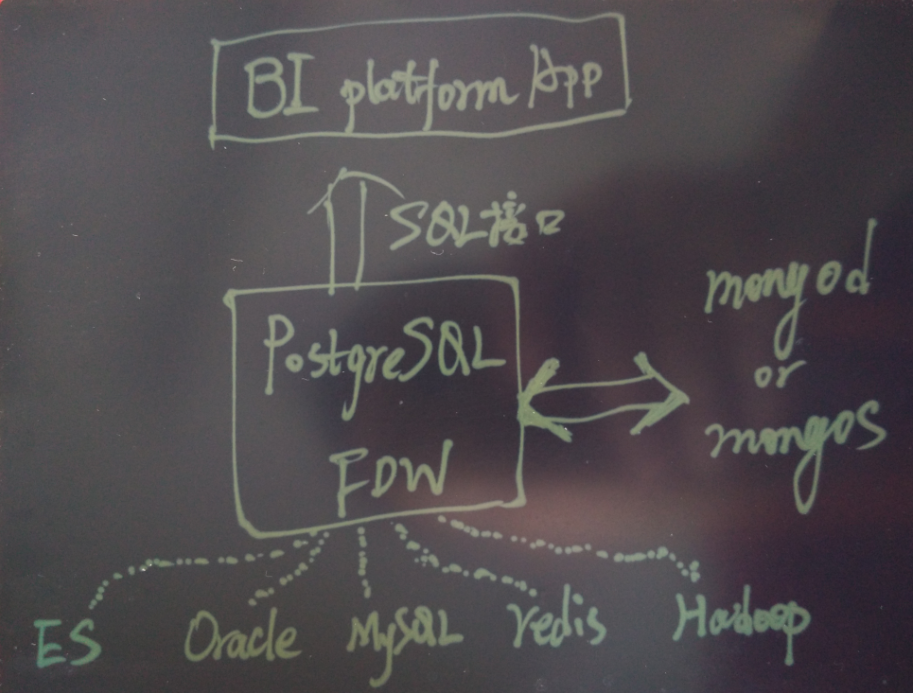 BI platform App
SQL接口
PostgreSQL
FDW
mongod
or
mongos
ES
Oracle
MySQL
redis
Hadoop